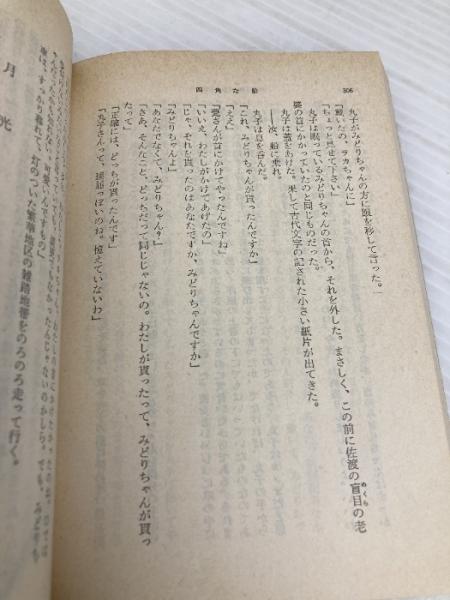 306
四角な船
丸子がみどりちゃんの方に眼を移して言った。
「戴いたの、ヲカちゃんに」
「ちょっと見せて下さい」
丸子は眠っているみどりちゃんの首から、それを外した。まさしく、この前に佐渡の盲目の老
めくら
婆の首にかかっていたのと同じものだった。
丸子は蓋をあけた。果して古代文字の記された小さい紙片が出てきた。
――汝、船に乗れ。
丸子は息を呑んだ。
「これ、みどりちゃんが貰ったんですか」
「ええ」
さんが首にかけてやったんですね」
「いいえ、わたしがかけてあげたの」
「じゃ、それを貰ったのはあなたですか、みどりちゃんですか」
「みどりちゃんよ」
「あなたでなくて、みどりちゃん?」
「さあ、そんなこと、どっちだって同じじゃないの。わたしが貰ったって、みどりちゃんが貰っ
たって」
「正確には、どっちが貰ったんです」
「丸子さんって、理屈っぽいのね。憶えていないわ」
月
光
車は、すっかり暮れて、灯のついた繁華地区の雑踏地帯をのろのろ走って行く。